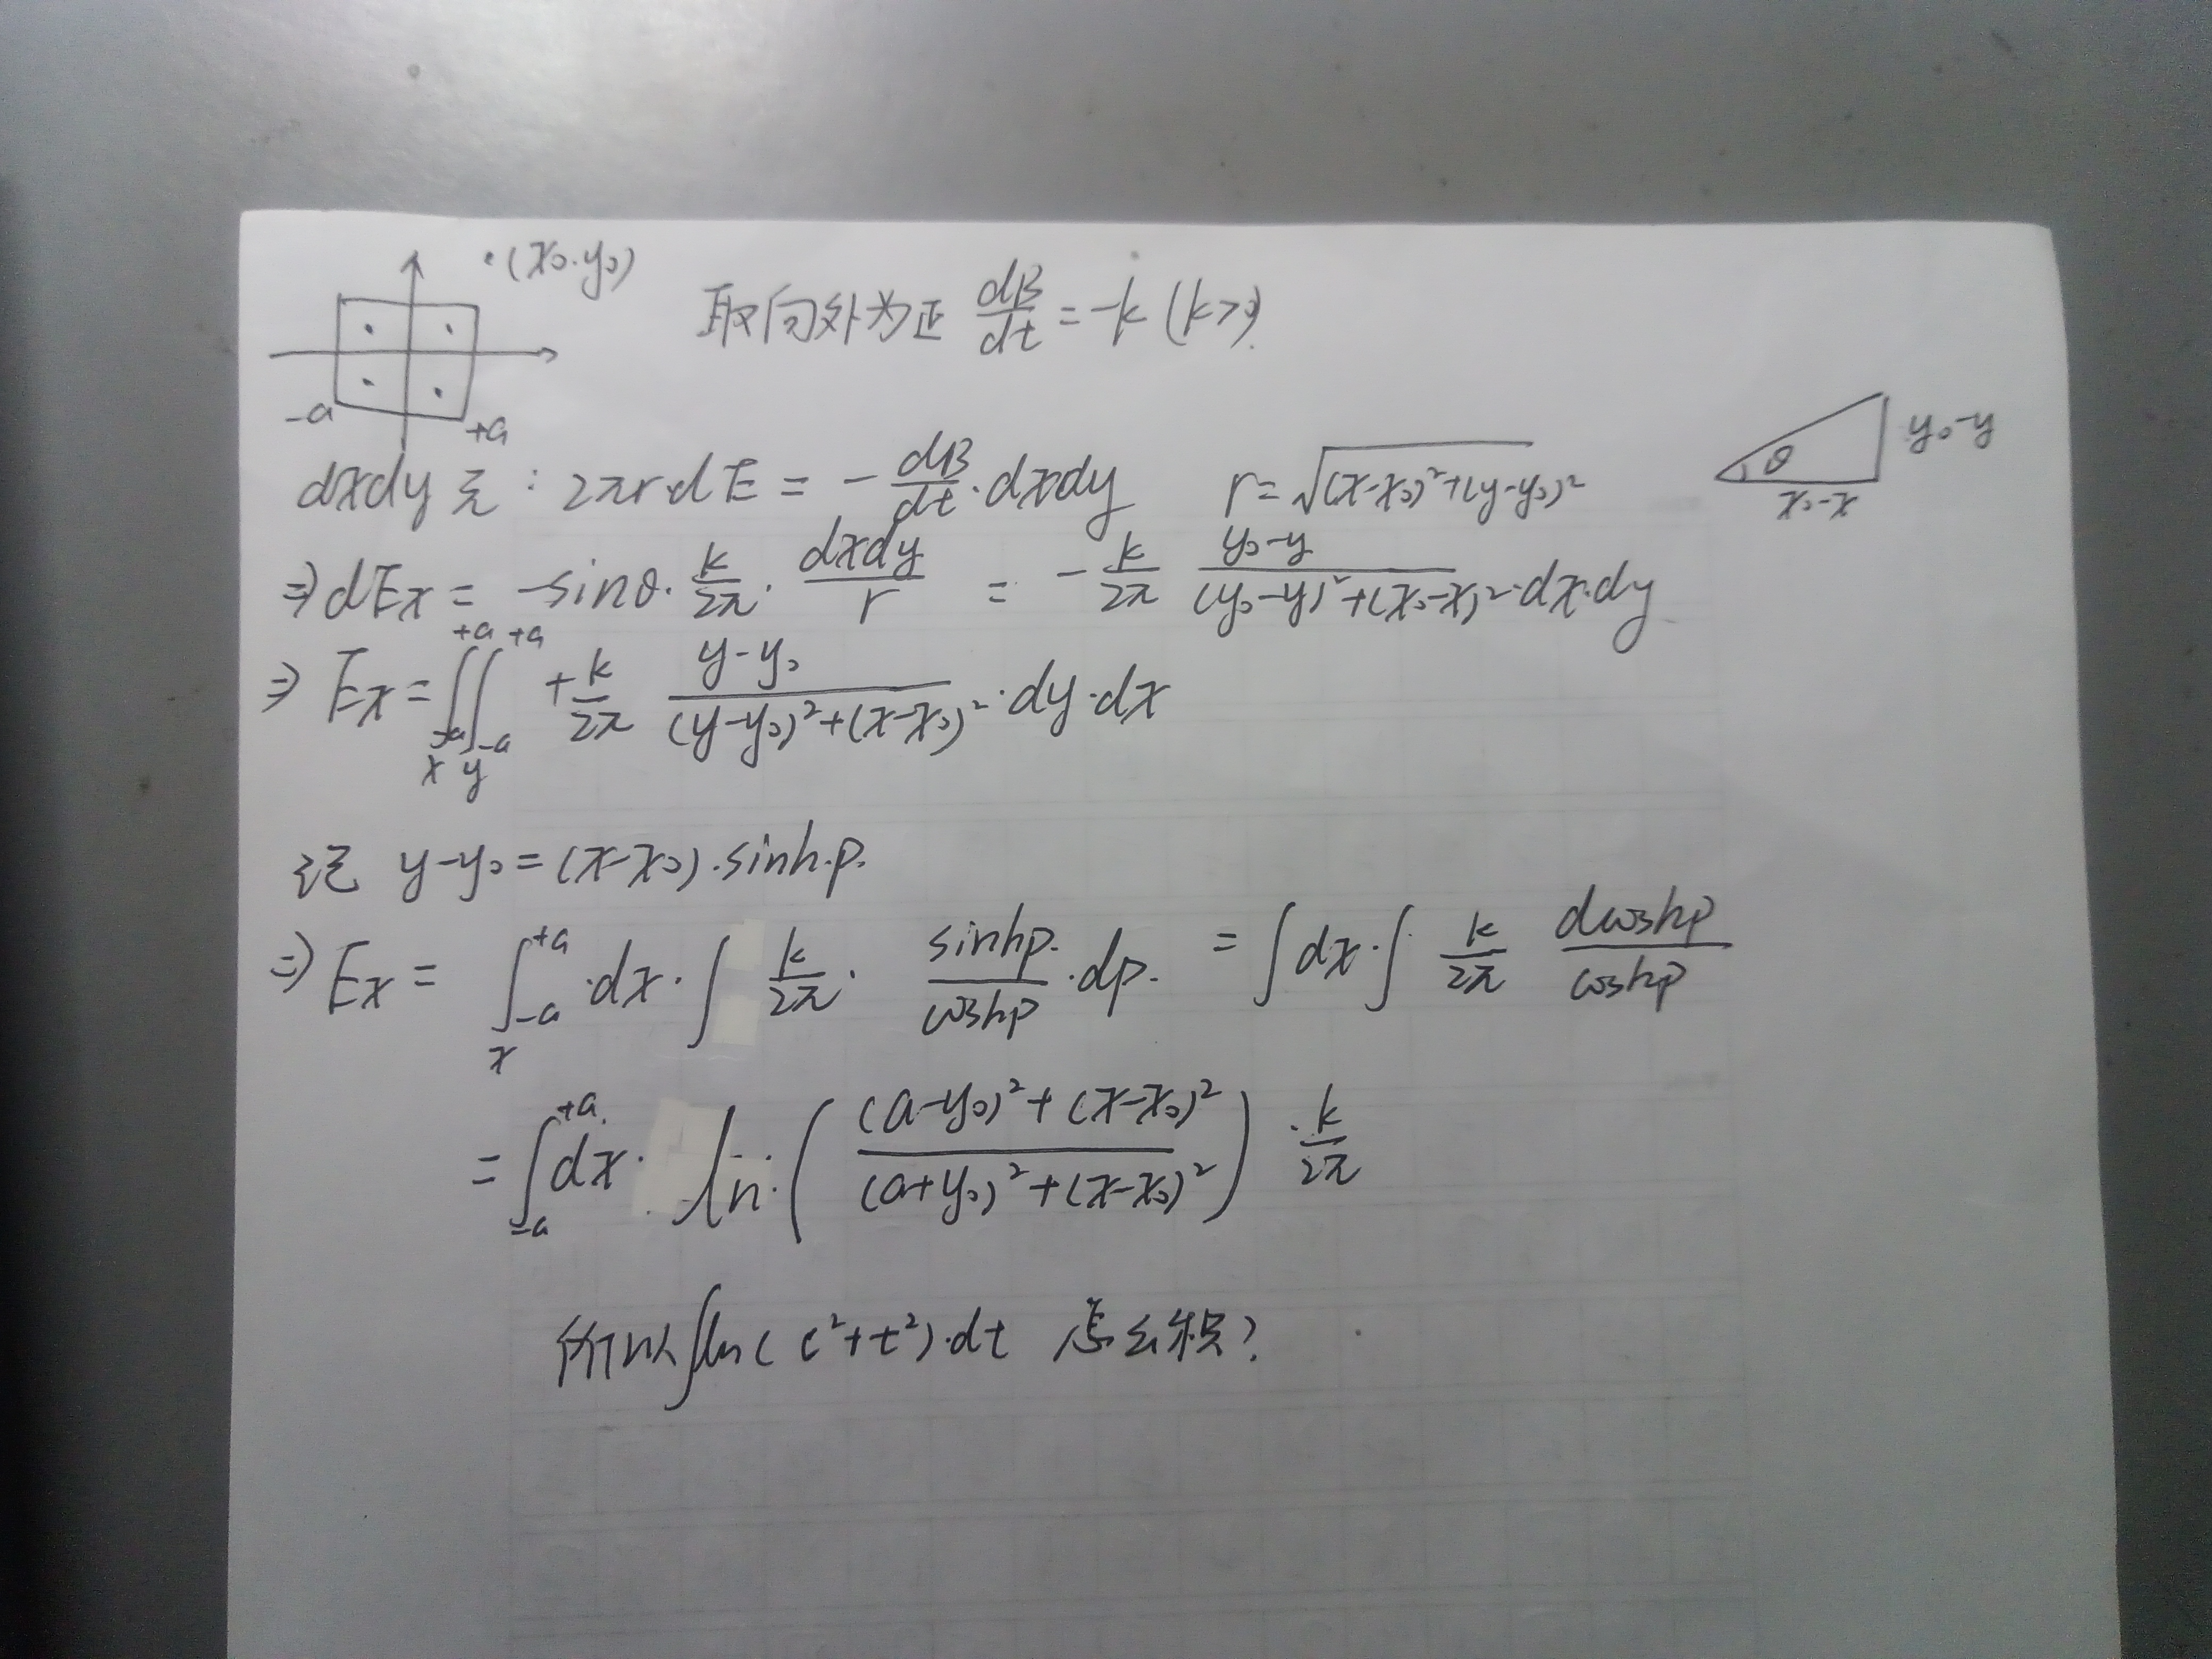 ·(x₀.y₀)
取向外为正 dB/dt = -k (k>0)
-a
+a
dxdy 元: 2πr·dE = - dB/dt · dxdy r = √((x-x₀)²+(y-y₀)²)
θ y₀-y
x₀-x
⇒ dEx = -sinθ · k/2π · dxdy/r = - k/2π (y₀-y)/((y₀-y)²+(x₀-x)²) · dx·dy
⇒ Ex = ∫_{-a, x}^{+a} ∫_{-a, y}^{+a} + k/2π (y-y₀)/((y-y₀)²+(x-x₀)²) · dy·dx
记 y-y₀ = (x-x₀)·sinh p.
⇒ Ex = ∫_{-a, x}^{+a} ·dx· ∫ k/2π · sinhp./coshp · dp. = ∫dx·∫ k/2π dcoshp/coshp
= ∫_{-a}^{+a} dx· ln·( ((a-y₀)²+(x-x₀)²)/((a+y₀)²+(x-x₀)²) ) · k/2π
所以∫ln(c²+t²)·dt 怎么积?